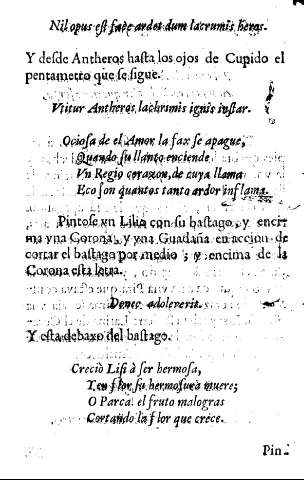 Nil opus est face ardet dum lacrumis heros.
Y desde Antheros hasta los ojos de Cupido el
pentametro que se sigue.
Vtitur Antheros lachrimis ignis instar.
Ociosa de el Amor la fax se apague,
Quando su llanto enciende
Vn Regio corazon, de cuya llama
Eco son quantos tanto ardor inflama.
Pintose vn Lilio con su bastago, y enci-
ma vna Corona, y vna Guadaña en accion de
cortar el bastago por medio; y encima de la
Corona esta letra.
Donec adoleverit.
Y esta debaxo del bastago.
Creciò Lisi à ser hermosa,
Y en flor su hermosura muere;
O Parca! el fruto malogras
Cortando la flor que crece.
Pin-